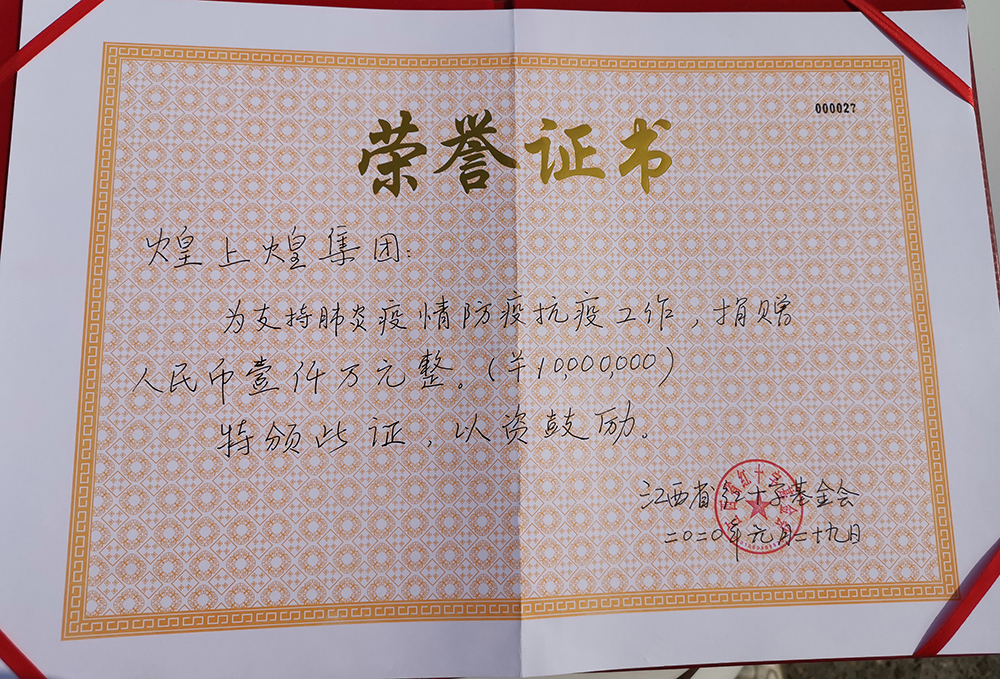 000027
荣誉证书
煌上煌集团:
为支持肺炎疫情防疫抗疫工作,捐赠
人民币壹仟万元整。(¥10,000,000)
特颁此证,以资鼓励。
江西省红十字基金会
二〇二〇年元月二十九日